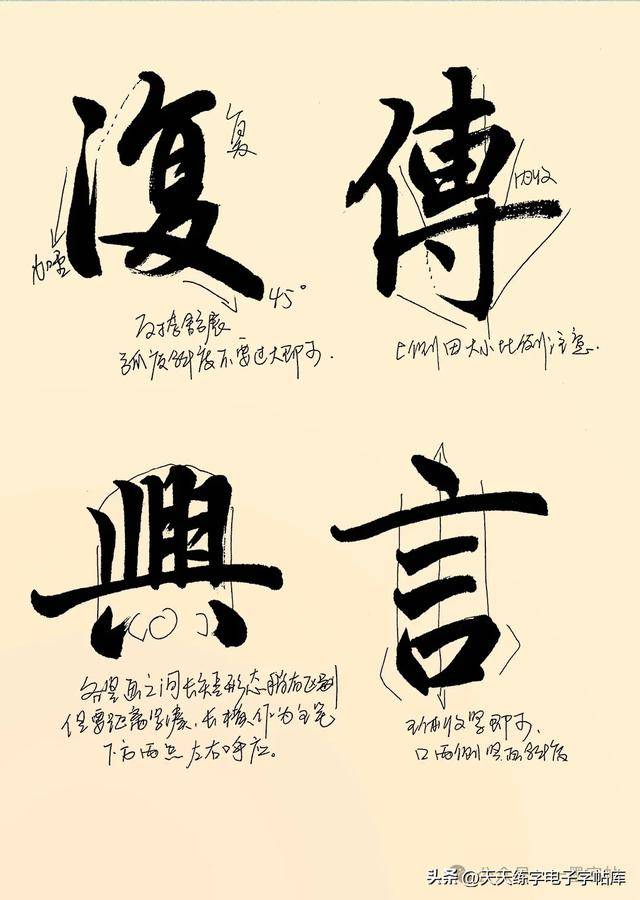 復
傳
复
内收
加重
45°
反捺舒展
弧度斜度不要过大即可.
上侧田大小比例注意.
興
言
各竖画之间长短形态稍有区别
但要距离紧凑、长横作为主笔
下方两点左右呼应。
两侧收紧即可、
口两侧竖画斜度
头条@天天练字电子字帖库